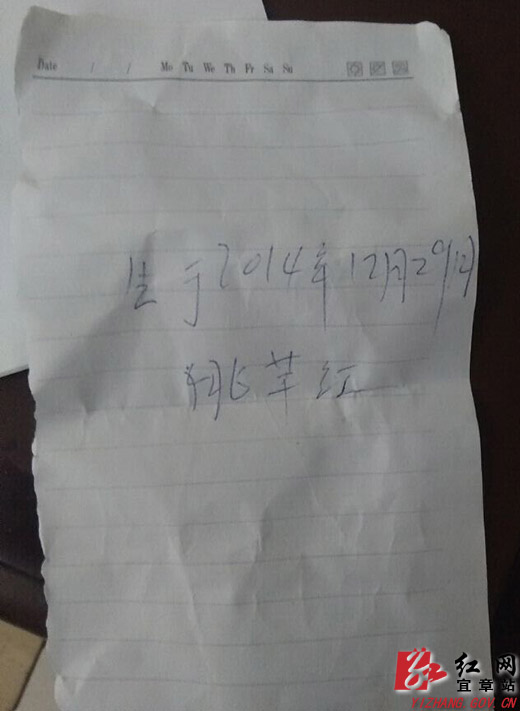 Date / / Mo Tu We Th Fr Sa Su
生于2014年12月29日
红
红网
宜章站
YIZHANG.GOV.CN